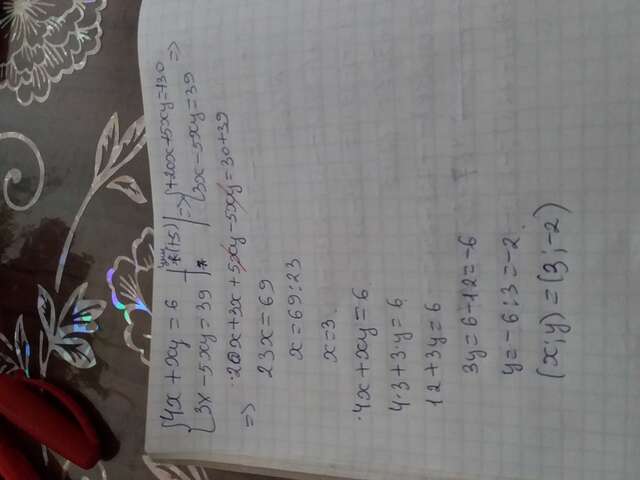 {4x + xy = 6 | (+5) | => {+20x+5xy=+30
{3x - 5xy = 39 | => {3x-5xy=39 =>
=> 20x+3x+5xy-5xy=30+39
23x=69
x=69:23
x=3.
4x+xy=6
4·3+3·y=6
12+3y=6
3y=6-12=-6
y=-6:3=-2
(x;y)=(3;-2)